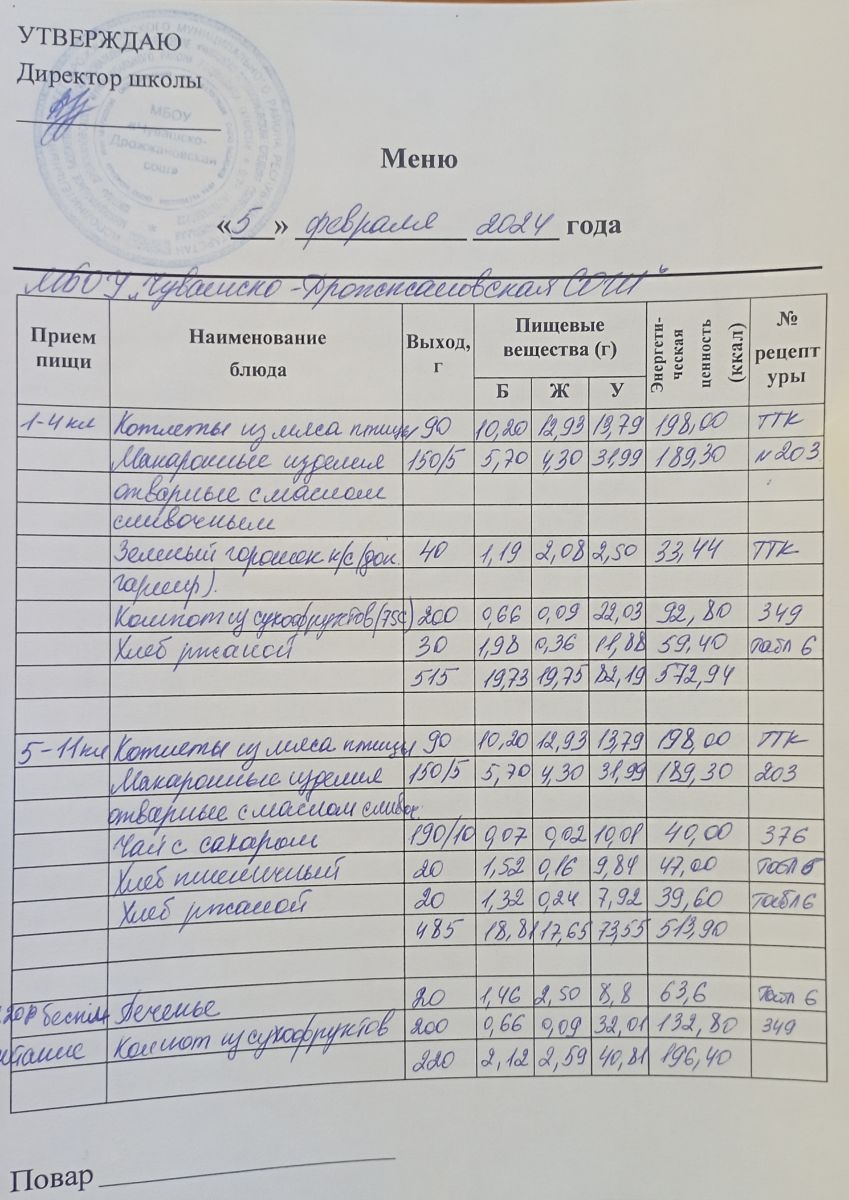 УТВЕРЖДАЮ
Директор школы
МБОУ
«Чувашско-
Дрожжановская
сош»
Меню
«5» февраля 2024 года
МБОУ „Чувашско-Дрожжановская СОШ“
Прием пищи Наименование блюда Выход, г Пищевые вещества (г) Энергети-ческая ценность (ккал) № рецептуры
Б Ж У
1-4 кл Котлеты из мяса птицы 90 10,20 12,93 13,79 198,00 ТТК
Макаронные изделия 150/5 5,70 4,30 31,99 189,30 №203
отварные с маслом
сливочным
Зеленый горошек к/с (доп. 40 1,19 2,08 2,50 33,44 ТТК
гарнир).
Компот из сухофруктов (75С) 200 0,66 0,09 22,03 92,80 349
Хлеб ржаной 30 1,98 0,36 11,88 59,40 Табл 6
515 19,73 19,75 82,19 572,94
5-11 кл Котлеты из мяса птицы 90 10,20 12,93 13,79 198,00 ТТК
Макаронные изделия 150/5 5,70 4,30 31,99 189,30 203
отварные с маслом сливоч.
Чай с сахаром 190/10 0,07 0,02 10,01 40,00 376
Хлеб пшеничный 20 1,52 0,16 9,84 47,00 Табл 5
Хлеб ржаной 20 1,32 0,24 7,92 39,60 Табл 6
485 18,81 17,65 73,55 513,90
беспл Печенье 20 1,46 2,50 8,8 63,6 Табл 6
питание Компот из сухофруктов 200 0,66 0,09 32,01 132,80 349
220 2,12 2,59 40,81 196,40
Повар